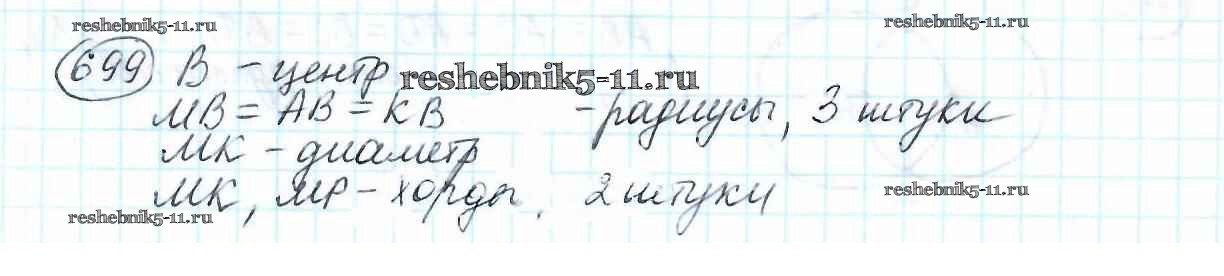 reshebnik5-11.ru reshebnik5-11.ru
699 В - центр reshebnik5-11.ru
МВ = АВ = КВ - радиусы, 3 штуки
МК - диаметр
МК, МР - хорды, 2 штуки reshebnik5-11.ru
reshebnik5-11.ru